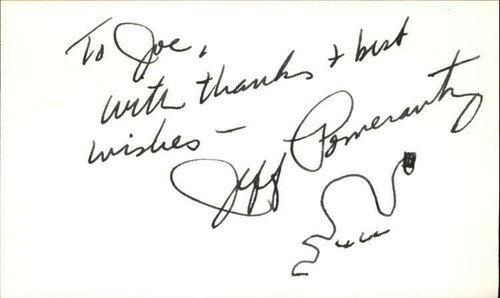 To Joe,
with thanks + best
wishes -
Jeff Pomerantz